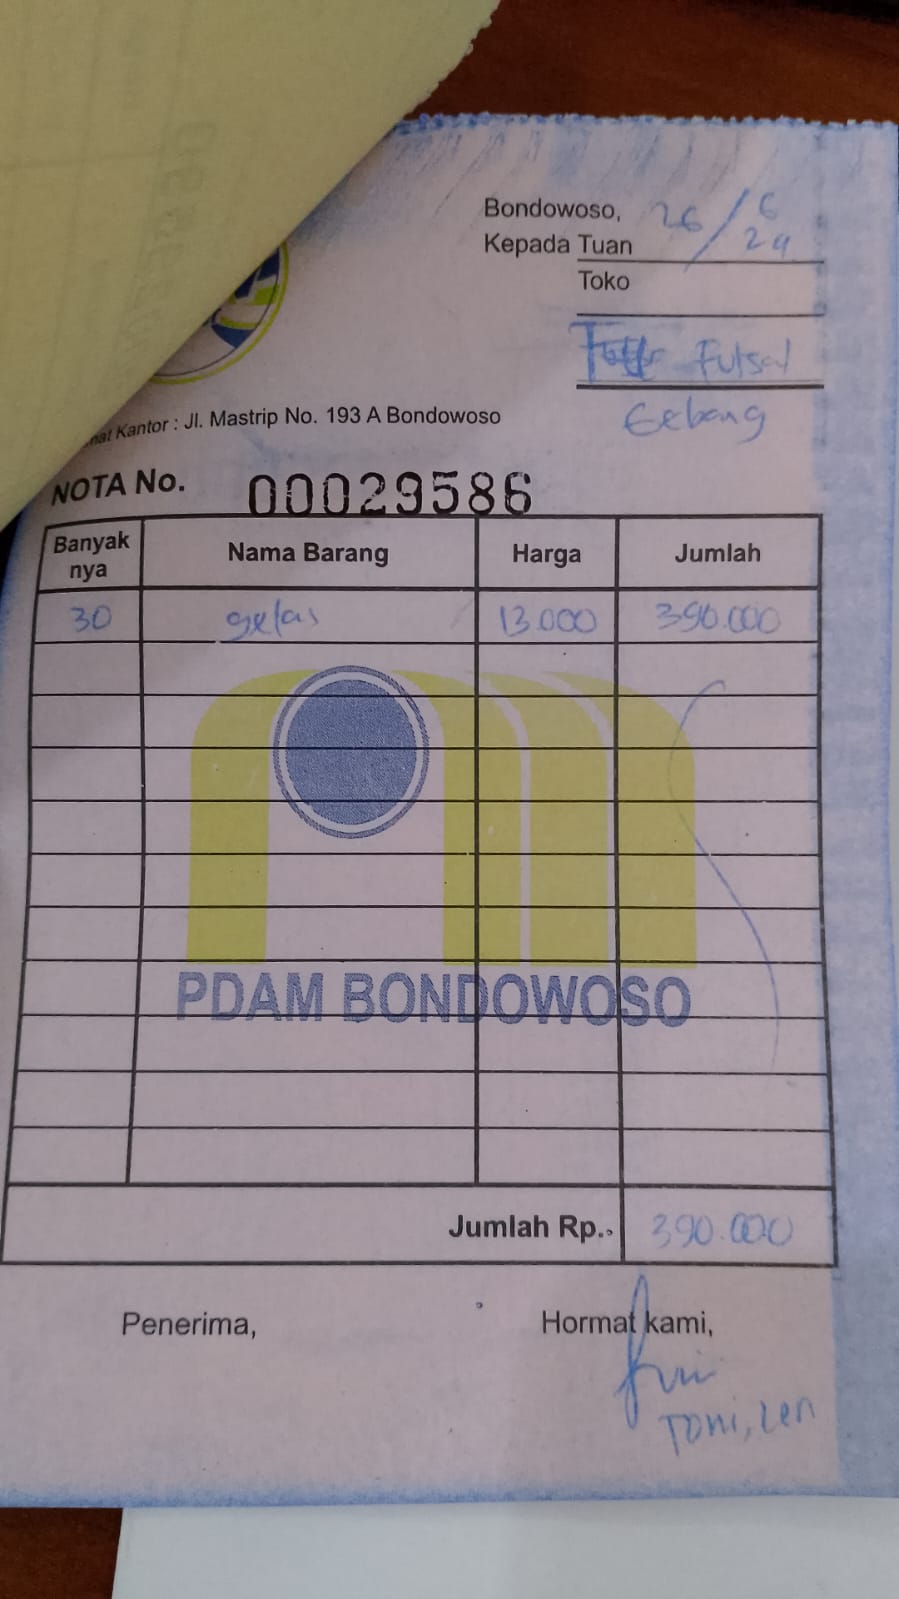 Bondowoso, 26/6 24
Kepada Tuan
Toko
Futsal
Gebang
Kantor : Jl. Mastrip No. 193 A Bondowoso
NOTA No. 00029586
Banyak nya Nama Barang Harga Jumlah
30 gelas 13.000 390.000
PDAM BONDOWOSO
Jumlah Rp. 390.000
Penerima, Hormat kami,
Toni, Len